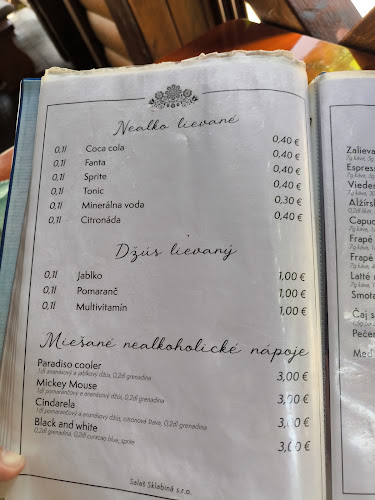 Nealko lievané
0,1l Coca cola 0,40 €
0,1l Fanta 0,40 €
0,1l Sprite 0,40 €
0,1l Tonic 0,40 €
0,1l Minerálna voda 0,30 €
0,1l Citronáda 0,40 €
Džús lievaný
0,1l Jablko 1,00 €
0,1l Pomaranč 1,00 €
0,1l Multivitamín 1,00 €
Miešané nealkoholické nápoje
Paradiso cooler 3,00 €
1dl ananásový a jablkový džús, 0,2dl grenadina
Mickey Mouse 3,00 €
1dl pomarančový a ananásový džús, 0,2dl grenadina
Cindarela 3,00 €
1dl pomarančový a ananásový džús, citrónová šťava, 0,2dl grenadina
Black and white 3,00 €
0,2dl grenadina, 0,2dl curacao blue, sprite
Salaš Sklabiná s.r.o.
Zalieva
7g káva,
Espress
7g káva,
Vieden
7g káva, 30
Alžírsk
0,2dl like
Capuc
7g káva, 1
Frapé
7g káva,
Frapé
Latté
Smote
Čaj s
Pečen
Med